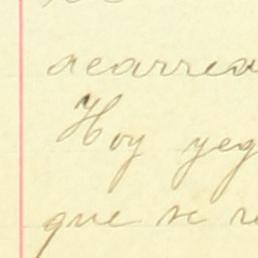 acarrea
Hoy yeg
que se r